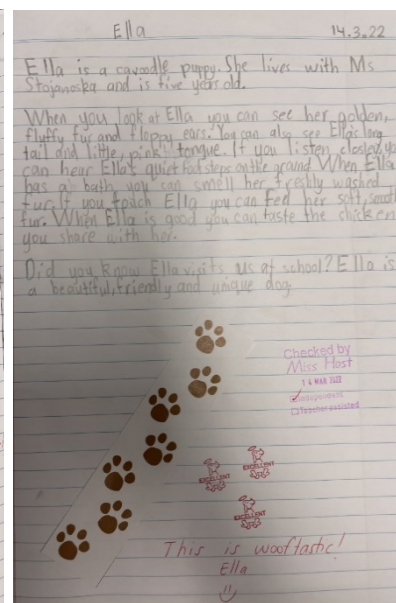 Ella 14.3.22
Ella is a cavoodle puppy. She lives with Ms
Stojanoska and is five years old.
When you look at Ella you can see her golden,
fluffy fur and floppy ears. You can also see Ella's long
tail and little, pink tongue. If you listen closley, you
can hear Ella's quiet foot steps on the ground When Ella
has a bath you can smell her freshly washed
fur. If you touch Ella you can feel her soft, smooth
fur. When Ella is good you can taste the chicken
you share with her.
Did you know Ella visits us at school? Ella is
a beautiful, friendly and unique dog.
Checked by
Miss Host
14 MAR 2022
Independent
Teacher assisted
EXCELLENT
EXCELLENT
EXCELLENT
This is wooftastic!
Ella